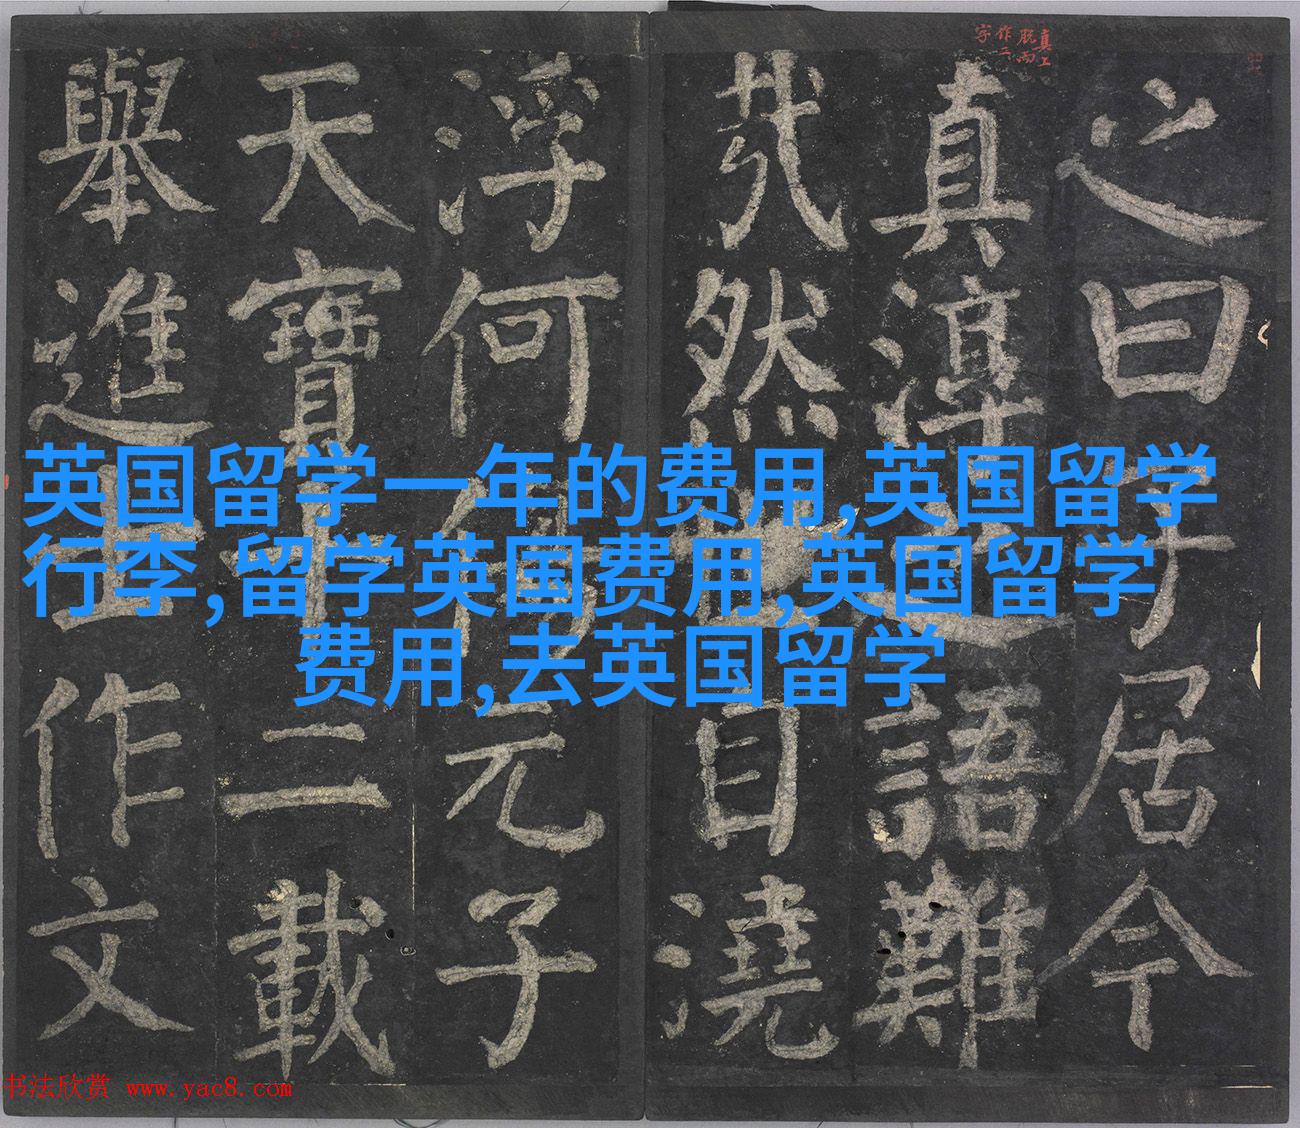 之曰子居今
真淳之語難
哉然世自澆
浮何傷元子
天寶十二載
舉進士作文
真上
脫而
作二
字
英国留学一年的费用,英国留学
行李,留学英国费用,英国留学
费用,去英国留学
书法欣赏 www.yac8.com